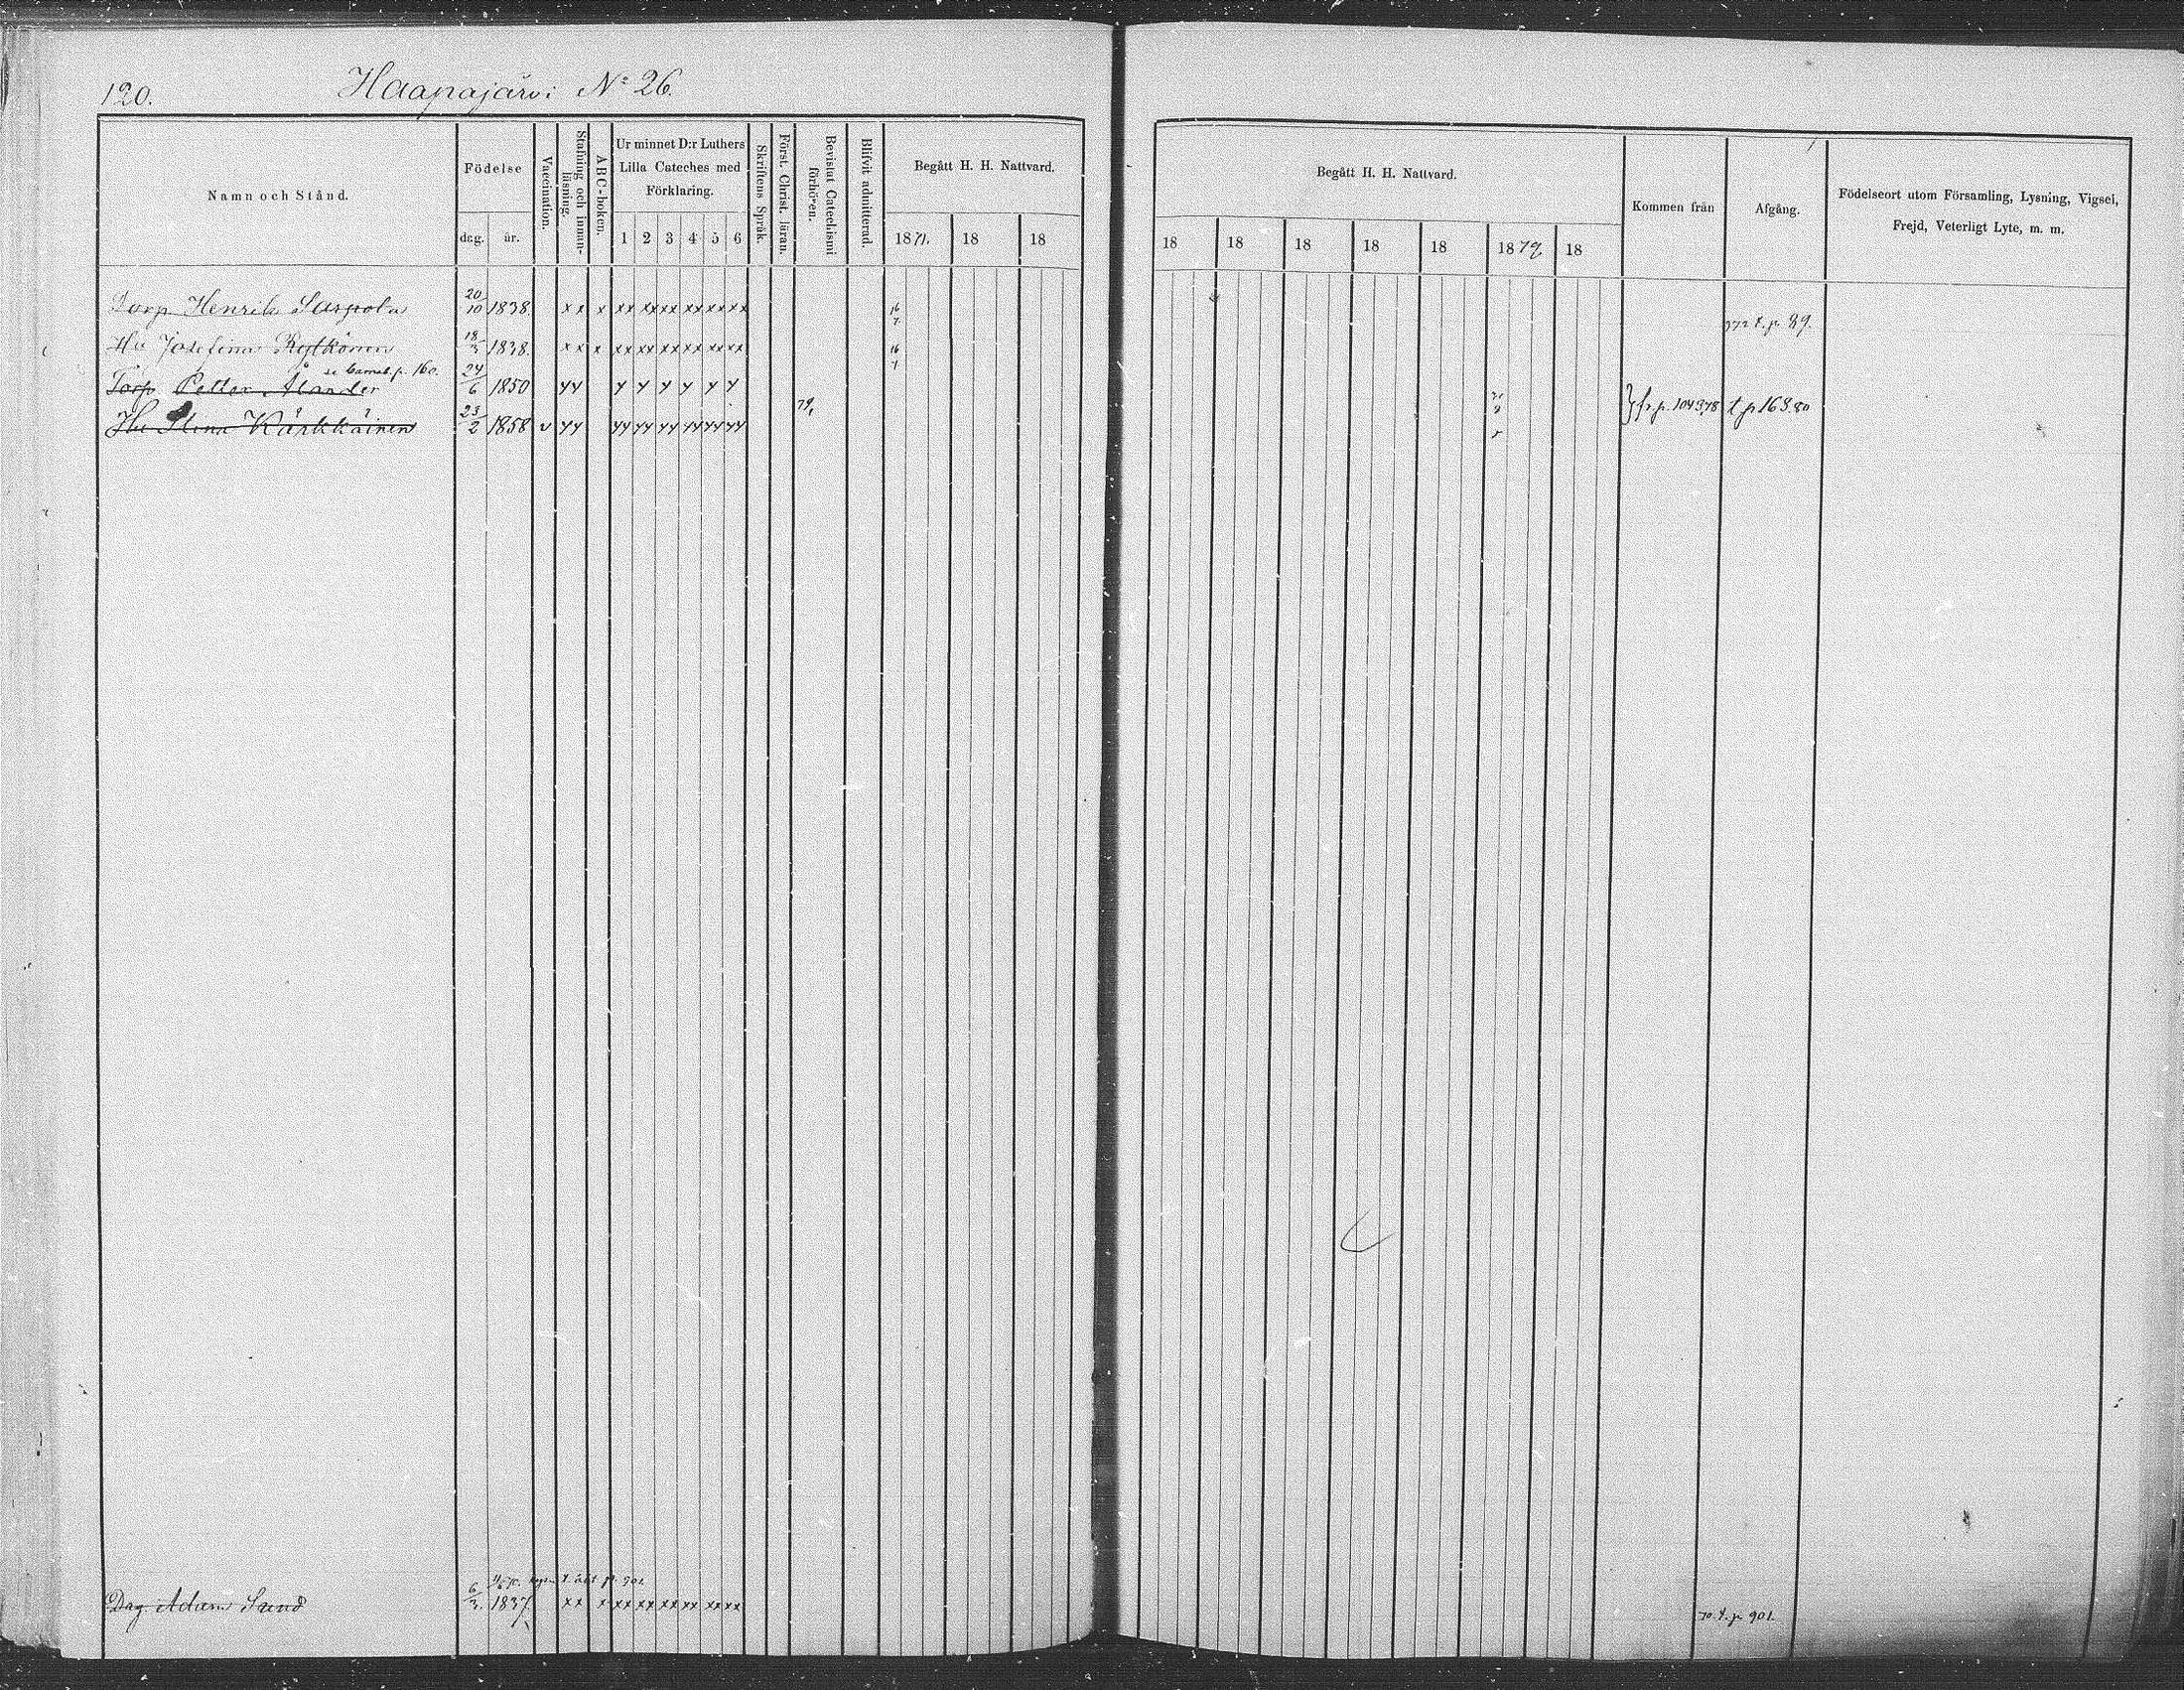 120.
Haapajärvi No 26.
Namn och Stånd.
Födelse
dag.
år.
Vaccination.
Stafning och innan-
läsning.
ABC-boken.
Ur minnet D:r Luthers
Lilla Cateches med
Förklaring.
1 2 3 4 5 6
Skriftens Språk.
Först. Christ. läran.
Bevistat Catechismi
förhören.
Blifvit admitterad.
Begått H. H. Nattvard.
1871. 18 18
Begått H. H. Nattvard.
18 18 18 18 18 1879 18
Kommen från
Afgång.
Födelseort utom Församling, Lysning, Vigsel,
Frejd, Veterligt Lyte, m. m.
Torp Henrik 20/10 1838. x x x xx xx xx xx xx xx 16/7 t. p. 89.
Hu Josefina Rytkönen 18/3 1838. x x x xx xx xx xx xx xx 16/7
se p. 160.
Torp Petter Ålander 24/6 1850 79, } fr. p. 1043,78 t. p 168.80
Hu Stina Kärkkäinen 23/2 1858 v
p. 901
Drg. Adam Sund 6/3. 1837. x x x xx xx xx xx xx xx 70. t. p 901.